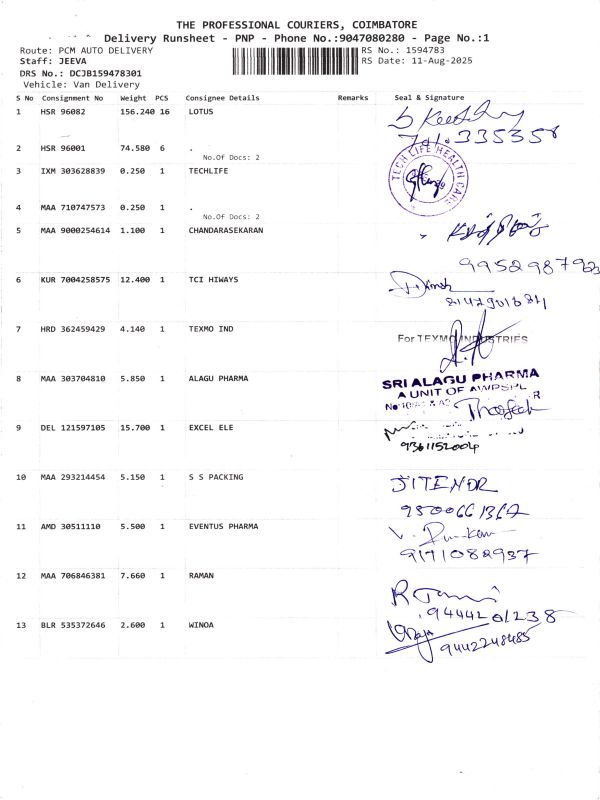 THE PROFESSIONAL COURIERS, COIMBATORE
Delivery Runsheet - PNP - Phone No.:9047080280 - Page No.:1
Route: PCM AUTO DELIVERY RS No.: 1594783
Staff: JEEVA RS Date: 11-Aug-2025
DRS No.: DCJB159478301
Vehicle: Van Delivery
S No Consignment No Weight PCS Consignee Details Remarks Seal & Signature
1 HSR 96082 156.240 16 LOTUS
2 HSR 96001 74.580 6 .
No.Of Docs: 2
3 IXM 303628839 0.250 1 TECHLIFE
TECH LIFE HEALTH CARE
4 MAA 710747573 0.250 1 .
No.Of Docs: 2
5 MAA 9000254614 1.100 1 CHANDARASEKARAN
9952987923
6 KUR 7004258575 12.400 1 TCI HIWAYS
7 HRD 362459429 4.140 1 TEXMO IND
For TEXMO INDUSTRIES
8 MAA 303704810 5.850 1 ALAGU PHARMA
SRI ALAGU PHARMA
A UNIT OF AWPSPL
9 DEL 121597105 15.700 1 EXCEL ELE
9361152004
10 MAA 293214454 5.150 1 S S PACKING
JITENDR
11 AMD 30511110 5.500 1 EVENTUS PHARMA
9171082937
12 MAA 706846381 7.660 1 RAMAN
9444201238
13 BLR 535372646 2.600 1 WINOA
9442248485